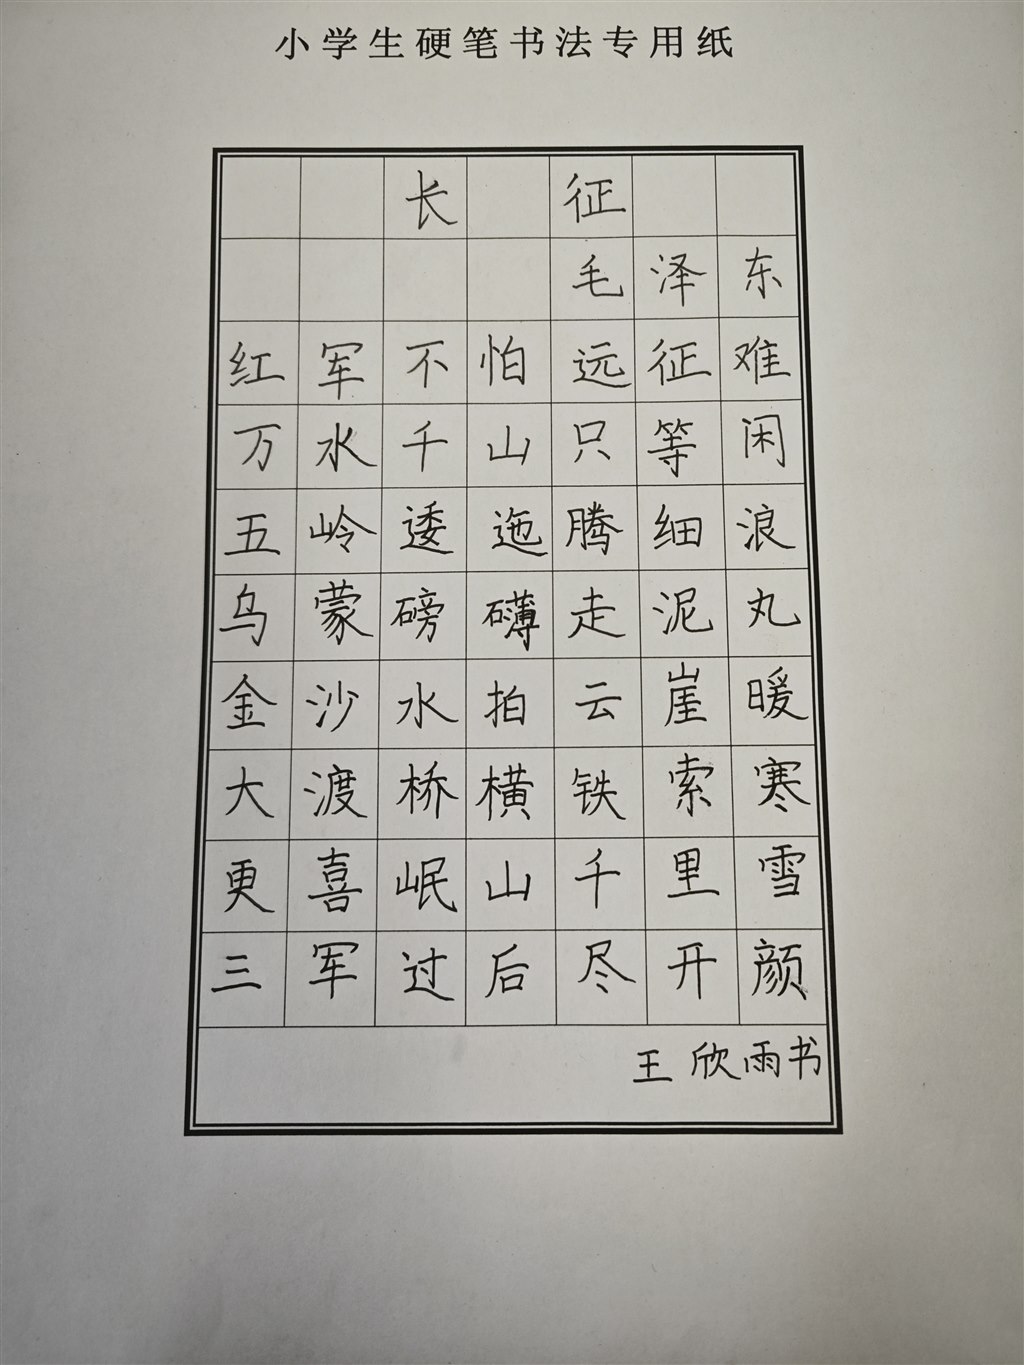 小学生硬笔书法专用纸
长征
毛泽东
红军不怕远征难
万水千山只等闲
五岭逶迤腾细浪
乌蒙磅礴走泥丸
金沙水拍云崖暖
大渡桥横铁索寒
更喜岷山千里雪
三军过后尽开颜
王欣雨书